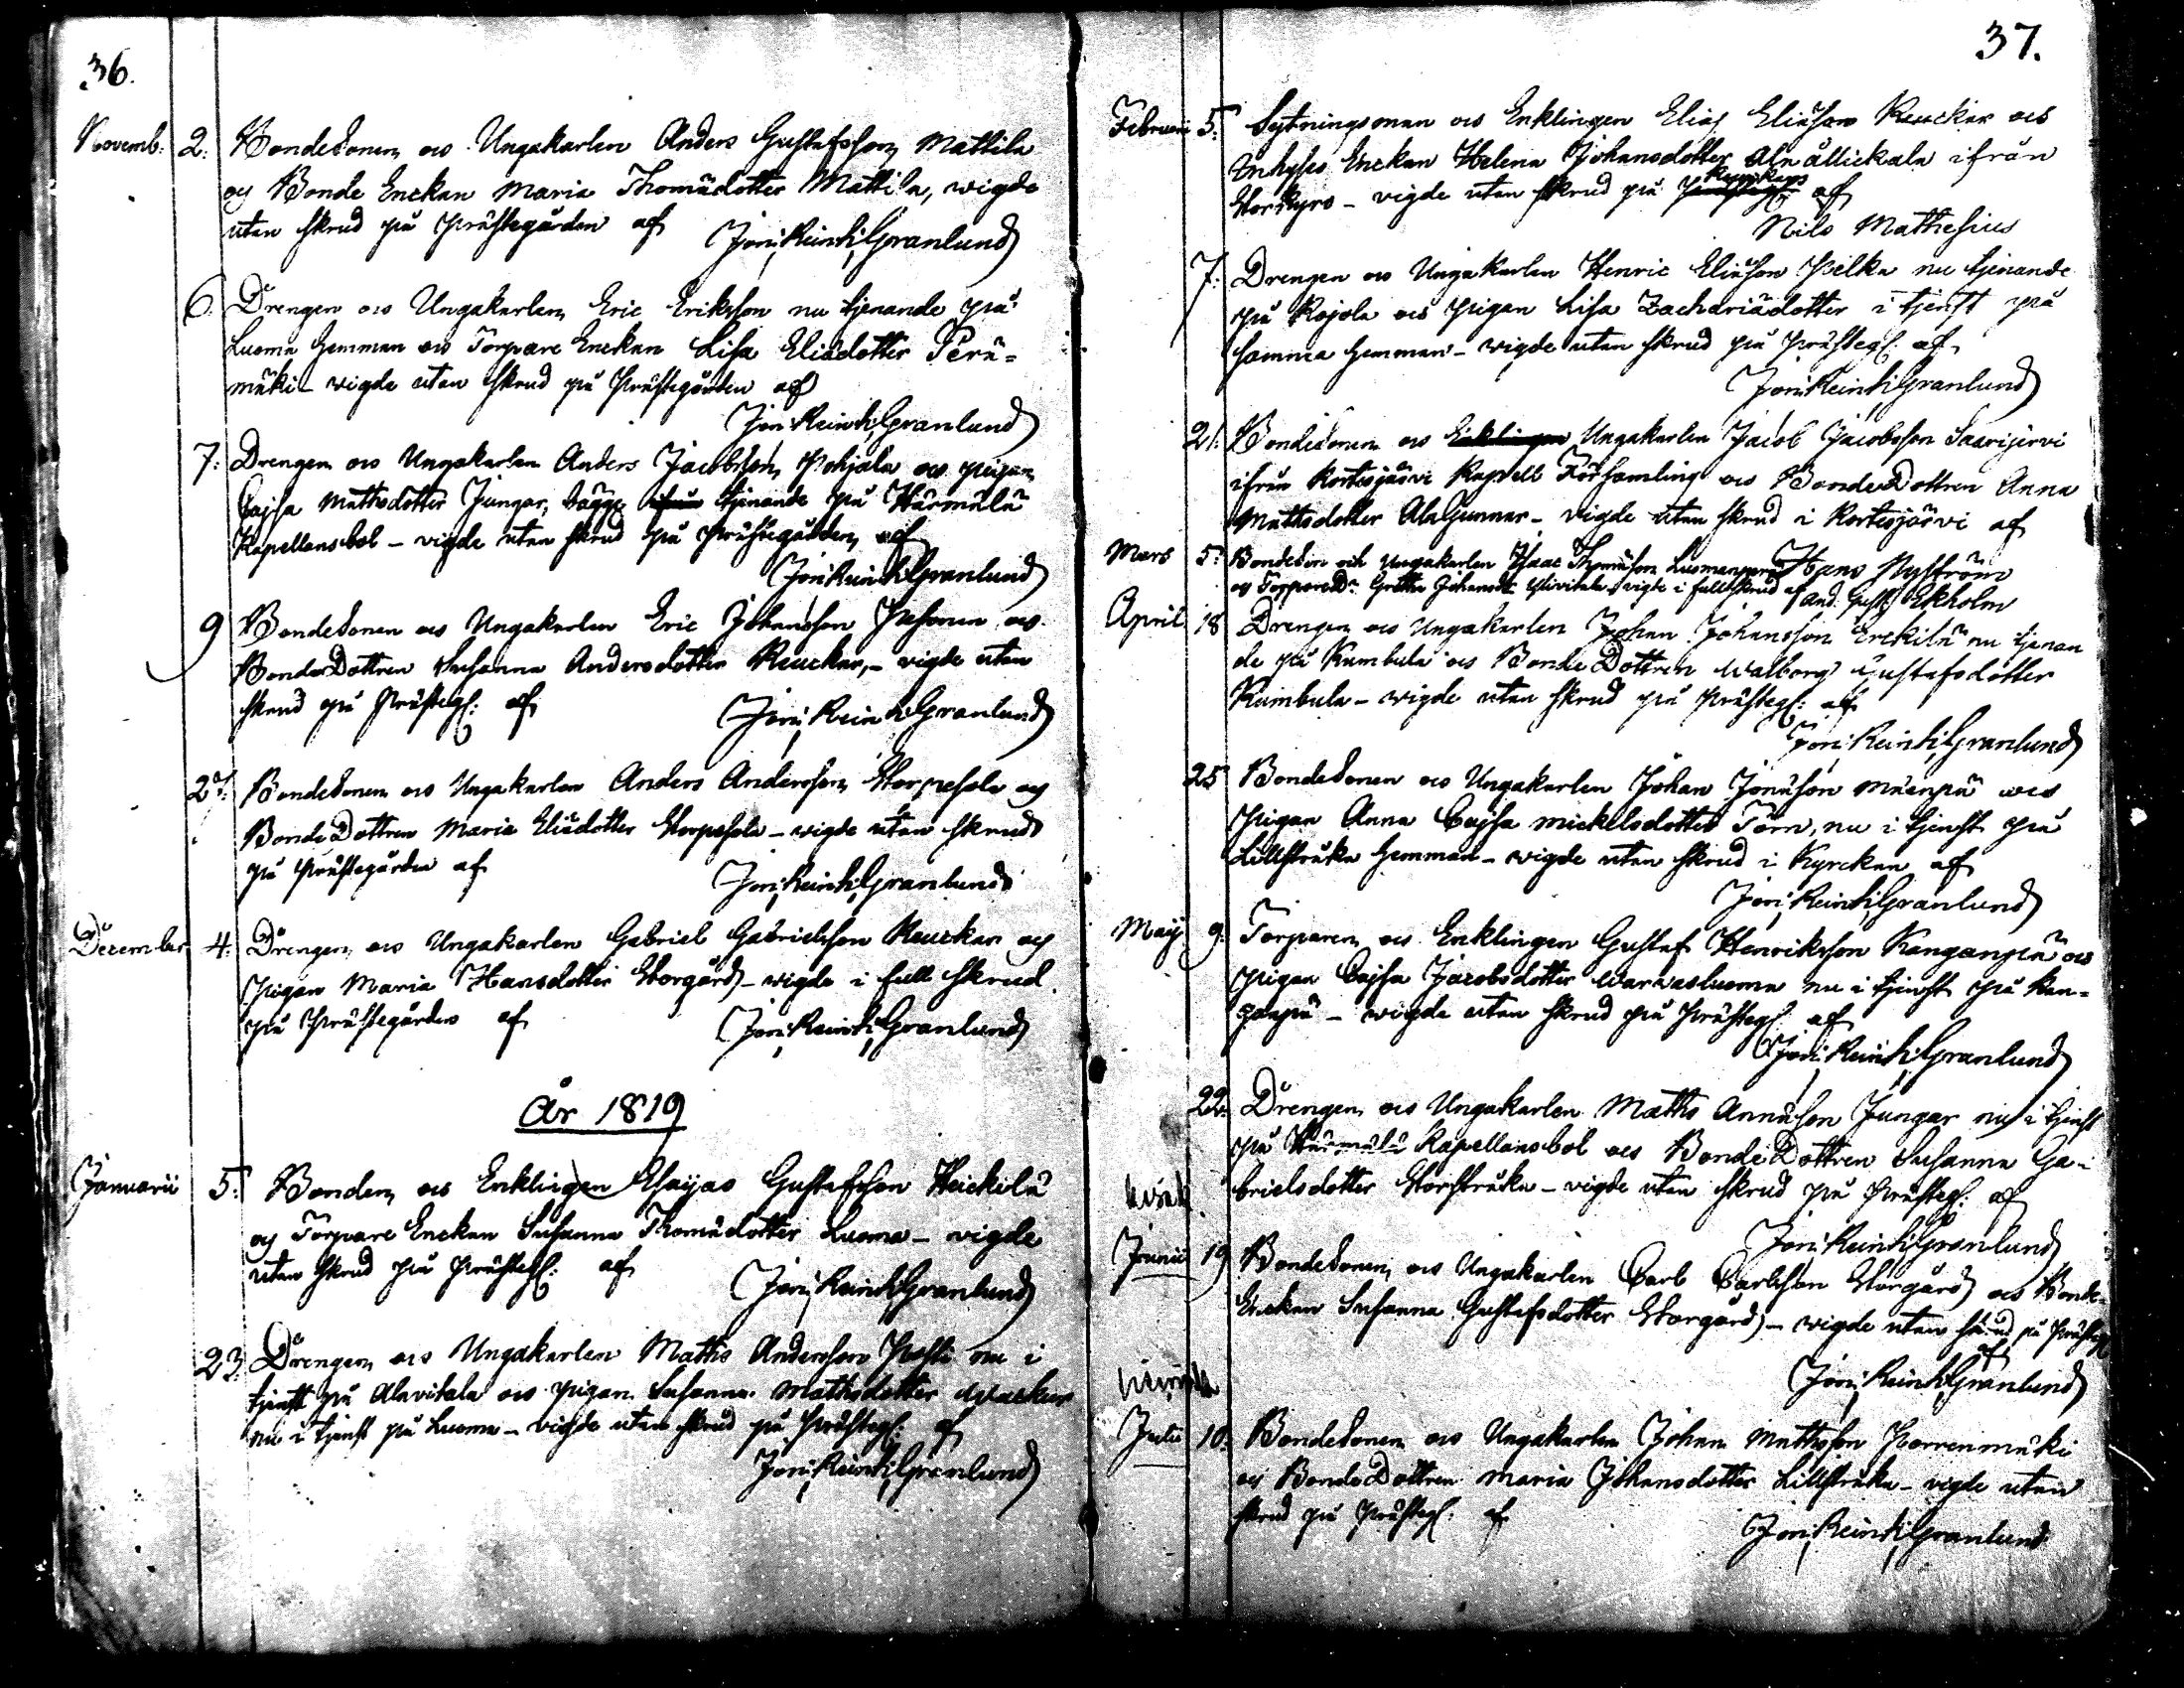 36.
Novemb: 2. Bondesonen och Ungakarlen Anders Gustafsson Mattila
og Bonde Enckan Maria Thomædotter Mattila, wigde
utan skrud på Prästegården af
Jon: Reinh: Granlund
6. Drengen och Ungakarlen Eric Eriksson nu tjenande på
Luoma hemman och Torpare Enckan Lisa Eliædotter Perä-
mäki - wigde utan skrud på Prästegården af
Jon: Reinh: Granlund
7: Drengen och Ungakarlen Anders Jacobsson Pohjala och pigan
Cajsa Mathsdotter Jungar, bägge tjenande på Härmälä
Kapellansbol - vigde utan skrud på Prästegården af
Jon: Reinh: Granlund
9 Bondesonen och Ungakarlen Eric Johansson Pesonen och
BondeDottren Susanna Andersdotter Reuckar, - vigde utan
skrud på Prästeg: af
Jon: Reinh: Granlund
27: Bondesonen och Ungakarlen Anders Andersson Storpesola og
BondeDottren Maria Eliædotter Storpesola - wigde utan skrud
på Prästegården af
Jon: Reinh: Granlund
December 4: Drengen och Ungakarlen Gabriel Gabrielsson Reuckar og
Pigan Maria Hansdotter Storgård - wigde i full skrud
på Prästegården af
Jon: Reinh: Granlund
År 1819
Januarii 5: Bonden och Enklingen Esaijas Gustafsson Heickilä
og Torpare Enckan Susanna Thomædotter Luoma - vigde
utan skrud på Prästeg: af
Jon: Reinh: Granlund
23: Drengen och Ungakarlen Maths Andersson Posti nu i
tjenst på Alavitala och pigan Susanna Mathsdotter Wackur
nu i tjenst på Luoma - vigde utan skrud på Prästeg: af
Jon: Reinh: Granlund
37.
Februarii 5: Sytningsman och Enklingen Elias Eliæson Reuckar och
Inhyses Enckan Helena Johansdotter Ala ifrån
Storkyro - vigde utan skrud på af
Nils Mathesius
7: Drengen och Ungakarlen Henric Eliæson Pelka nu tjenande
på Rajola och pigan Lisa Zachariædotter i tjenst på
samma hemman - wigde utan skrud på Prästeg: af
Jon: Reinh: Granlund
21: Bondesonen och Enklingen Ungakarlen Jacob Jacobsson Saarijervi
ifrån Kortesjärvi Kapell Församling och BondeDottren Anna
Mattsdotter AlaGunnar - vigde utan skrud i Kortesjärvi af
Hans Nyström
Mars 5: Bondeson och Ungakarlen Isaac Thomæson Luomanperä
og TorpareDr Gretha Johansdr Ylivitala vigde i full skrud af And. Gust: Ekholm
April 18 Drengen och Ungakarlen Johan Johansson Erckilä nu tjenan
de på Kumbula och BondeDottren Walborg Gustafsdotter
Kumbula - wigde utan skrud på Prästeg: af
Jon: Reinh: Granlund
25 Bondesonen och Ungakarlen Johan Jonæson Mäenpä och
Pigan Anna Cajsa Mickelsdotter Törn, nu i tjenst på
Lillstråka hemman - wigde utan skrud i Kyrckan af
Jon: Reinh: Granlund
Maij 9: Torparen och Enklingen Gustaf Henriksson Kanganpä och
Pigan Cajsa Jacobsdotter Warvasluoma nu i tjenst på Kan-
ganpä - wigde utan skrud på Prästeg: af
Jon: Reinh: Granlund
22: Drengen och Ungakarlen Maths Annæson Jungar nu i tjenst
på Härmälä Kapellansbol och BondeDottren Susanna Ga-
brielsdotter Storstråka - vigde utan skrud på Prästeg: af
Jon: Reinh: Granlund
Junii 19 Bondesonen och Ungakarlen Carl Carlsson Storgård och Bonde-
Enckan Susanna Gustafsdotter Storgård - wigde utan skrud på Prästeg
af
Jon: Reinh: Granlund
Julii 10: Bondesonen och Ungakarlen Johan Mathsson Porrenmäki
og BondeDottren Maria Johansdotter Lillstråka - vigde utan
skrud på Prästeg: af
Jon: Reinh: Granlund